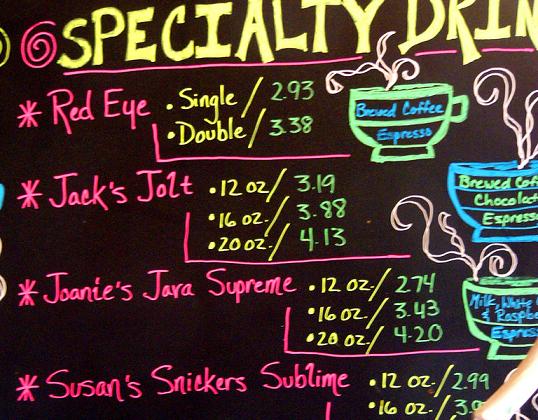 SPECIALTY
Red Eye • Single / 2.93
• Double / 3.38
Brewed Coffee
Espresso
Jack's Jolt • 12 oz / 3.19
• 16 oz. / 3.88
• 20 oz / 4.13
Brewed
Espresso
Joanie's Java Supreme • 12 oz. / 2.74
• 16 oz. / 3.43
• 20 oz. / 4.20
Milk, White
&
Susan's Snickers Sublime • 12 oz. / 2.99
• 16 oz. /